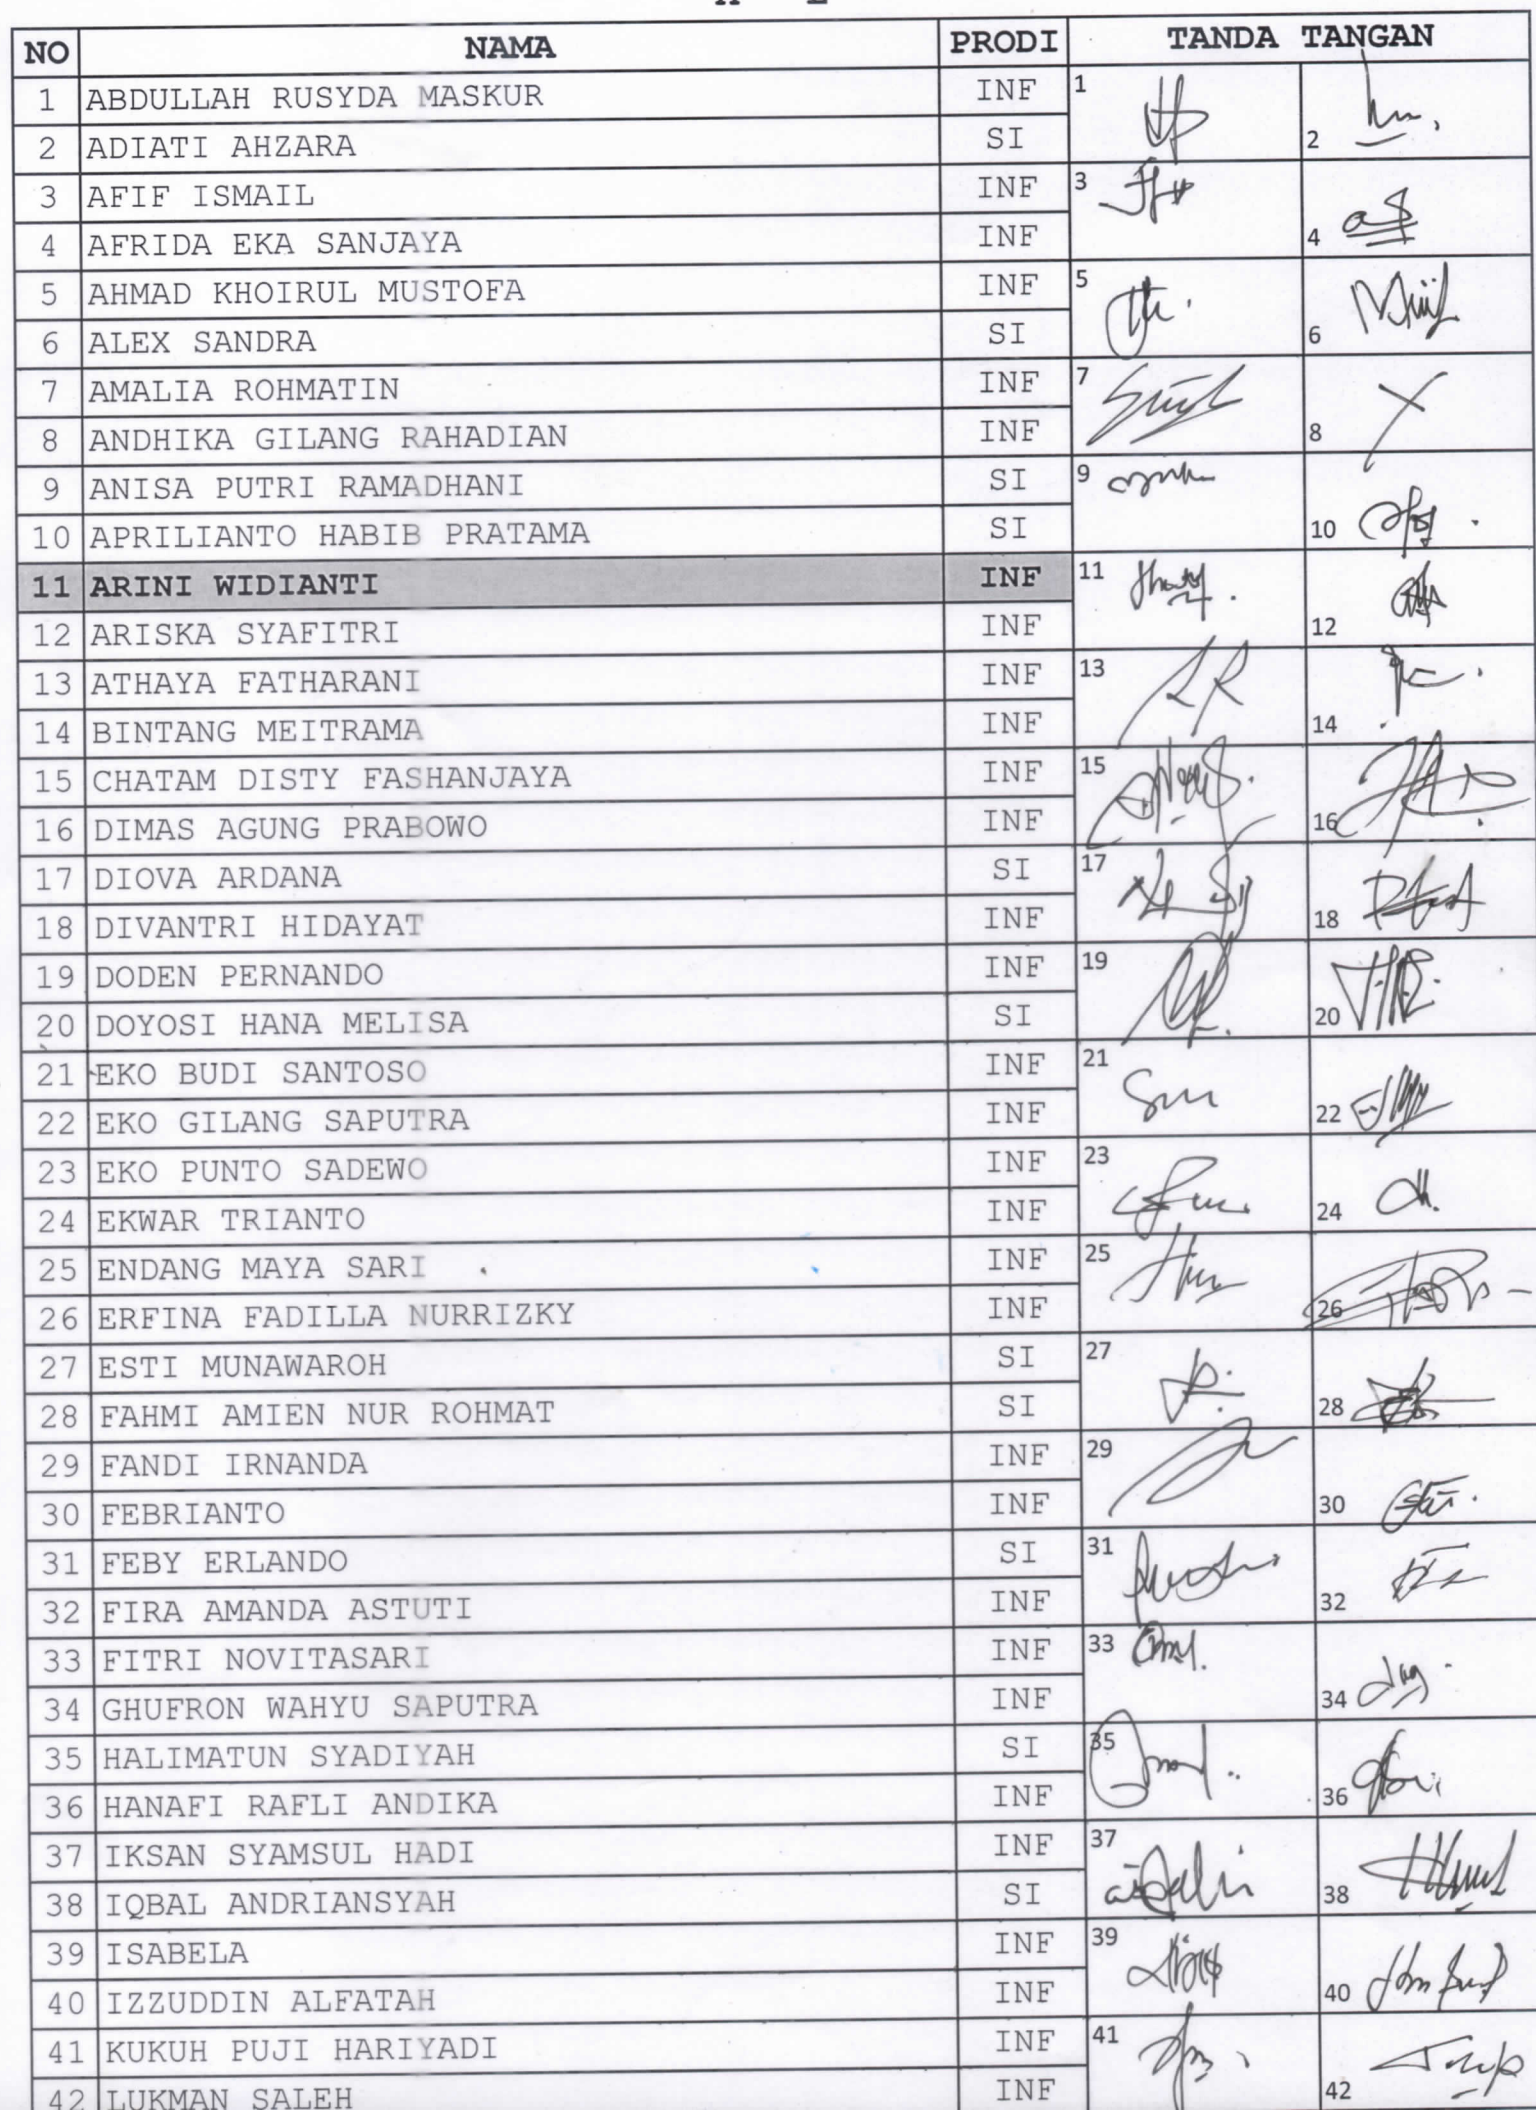 NO NAMA PRODI TANDA TANGAN
1 ABDULLAH RUSYDA MASKUR INF 1
2 ADIATI AHZARA SI 2
3 AFIF ISMAIL INF 3
4 AFRIDA EKA SANJAYA INF 4
5 AHMAD KHOIRUL MUSTOFA INF 5
6 ALEX SANDRA SI 6
7 AMALIA ROHMATIN INF 7
8 ANDHIKA GILANG RAHADIAN INF 8
9 ANISA PUTRI RAMADHANI SI 9
10 APRILIANTO HABIB PRATAMA SI 10
11 ARINI WIDIANTI INF 11
12 ARISKA SYAFITRI INF 12
13 ATHAYA FATHARANI INF 13
14 BINTANG MEITRAMA INF 14
15 CHATAM DISTY FASHANJAYA INF 15
16 DIMAS AGUNG PRABOWO INF 16
17 DIOVA ARDANA SI 17
18 DIVANTRI HIDAYAT INF 18
19 DODEN PERNANDO INF 19
20 DOYOSI HANA MELISA SI 20
21 EKO BUDI SANTOSO INF 21
22 EKO GILANG SAPUTRA INF 22
23 EKO PUNTO SADEWO INF 23
24 EKWAR TRIANTO INF 24
25 ENDANG MAYA SARI INF 25
26 ERFINA FADILLA NURRIZKY INF 26
27 ESTI MUNAWAROH SI 27
28 FAHMI AMIEN NUR ROHMAT SI 28
29 FANDI IRNANDA INF 29
30 FEBRIANTO INF 30
31 FEBY ERLANDO SI 31
32 FIRA AMANDA ASTUTI INF 32
33 FITRI NOVITASARI INF 33
34 GHUFRON WAHYU SAPUTRA INF 34
35 HALIMATUN SYADIYAH SI 35
36 HANAFI RAFLI ANDIKA INF 36
37 IKSAN SYAMSUL HADI INF 37
38 IQBAL ANDRIANSYAH SI 38
39 ISABELA INF 39
40 IZZUDDIN ALFATAH INF 40
41 KUKUH PUJI HARIYADI INF 41
42 LUKMAN SALEH INF 42